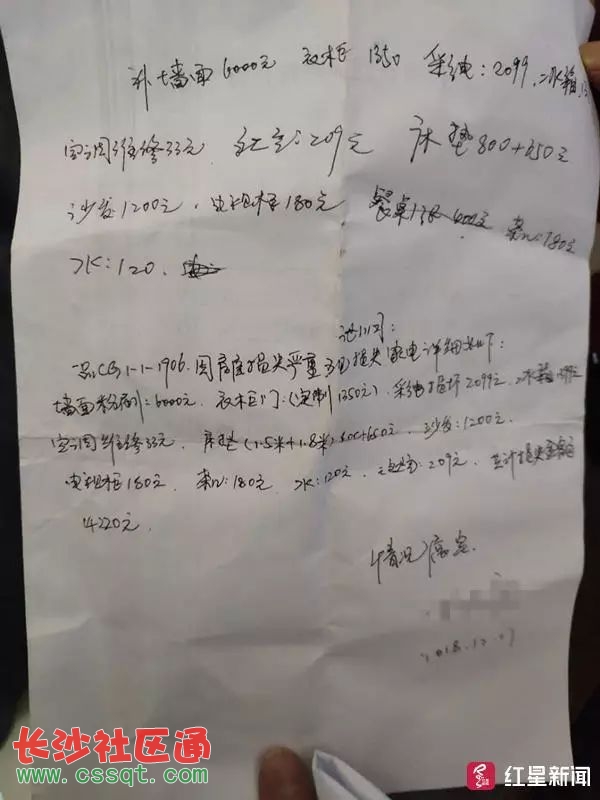 补墙面6000元 衣柜1350 彩电:2099. 冰箱
空调维修33元 209元 床垫800+650元
沙发1200元. 电视柜180元 餐桌 600元 180元
水:120.
1-1-1906. 因房屋损失严重 损失家电详细如下:
墙面粉刷:6000元. 衣柜门:(定制1350元). 彩电损坏2099元. 冰箱
空调维修33元. 床垫(1.5米+1.8米)800+650元. 沙发:1200元.
电视柜180元. 180元. 水:120元. 209元. 共计损失金额
14220元.
情况属实.
2018.12.
长沙社区通
www.cssqt.com
红星新闻